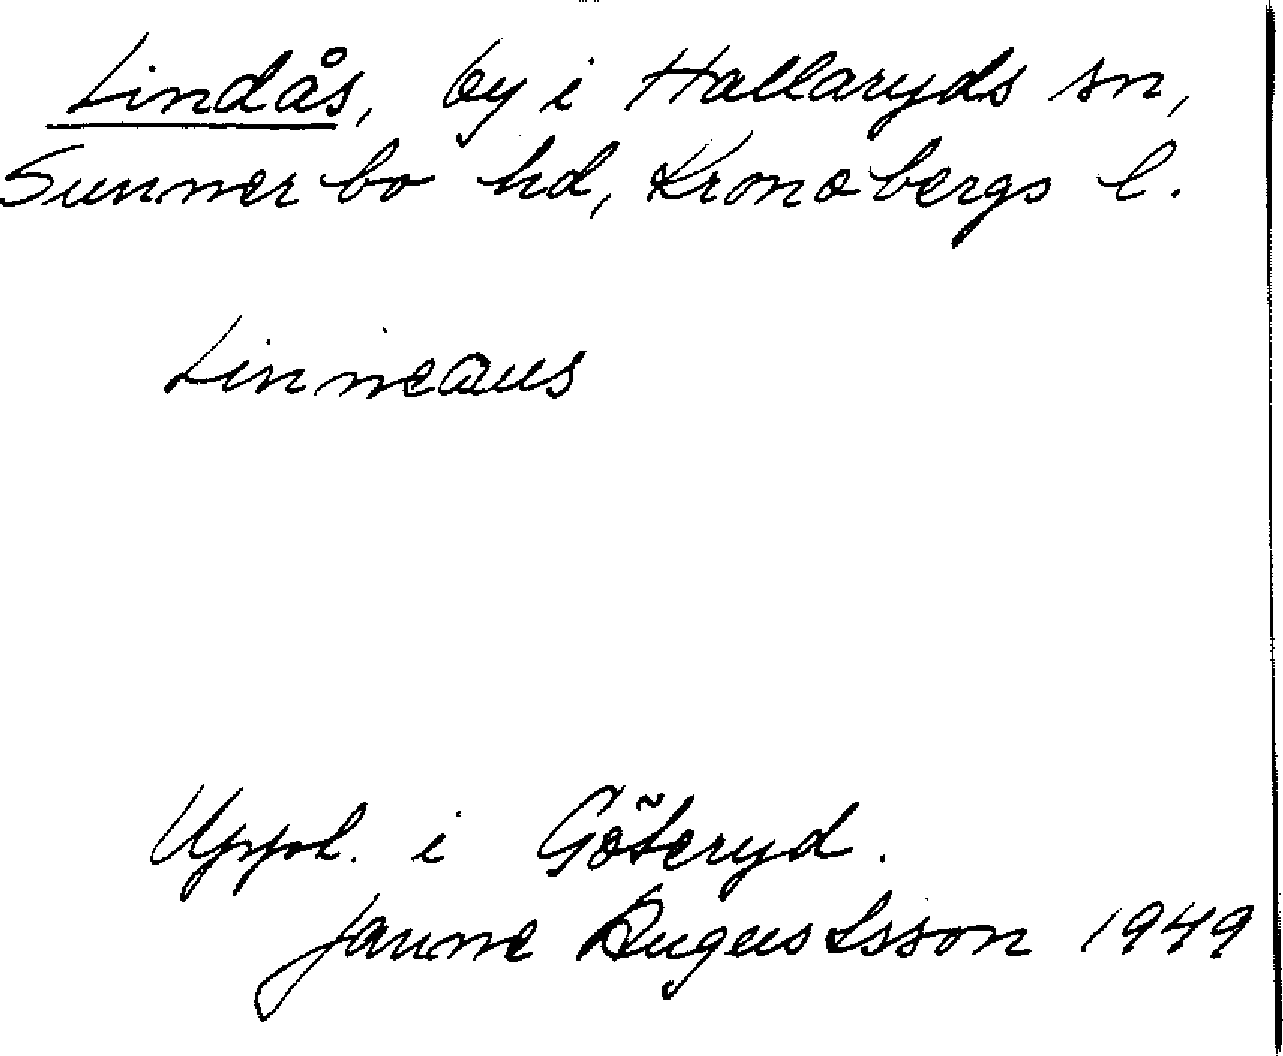 Lindås, by i Hallaryds sn,
Sunnerbo hd, Kronobergs l.
Linneaus
Uppt. i Göteryd.
Janne Augustsson 1949